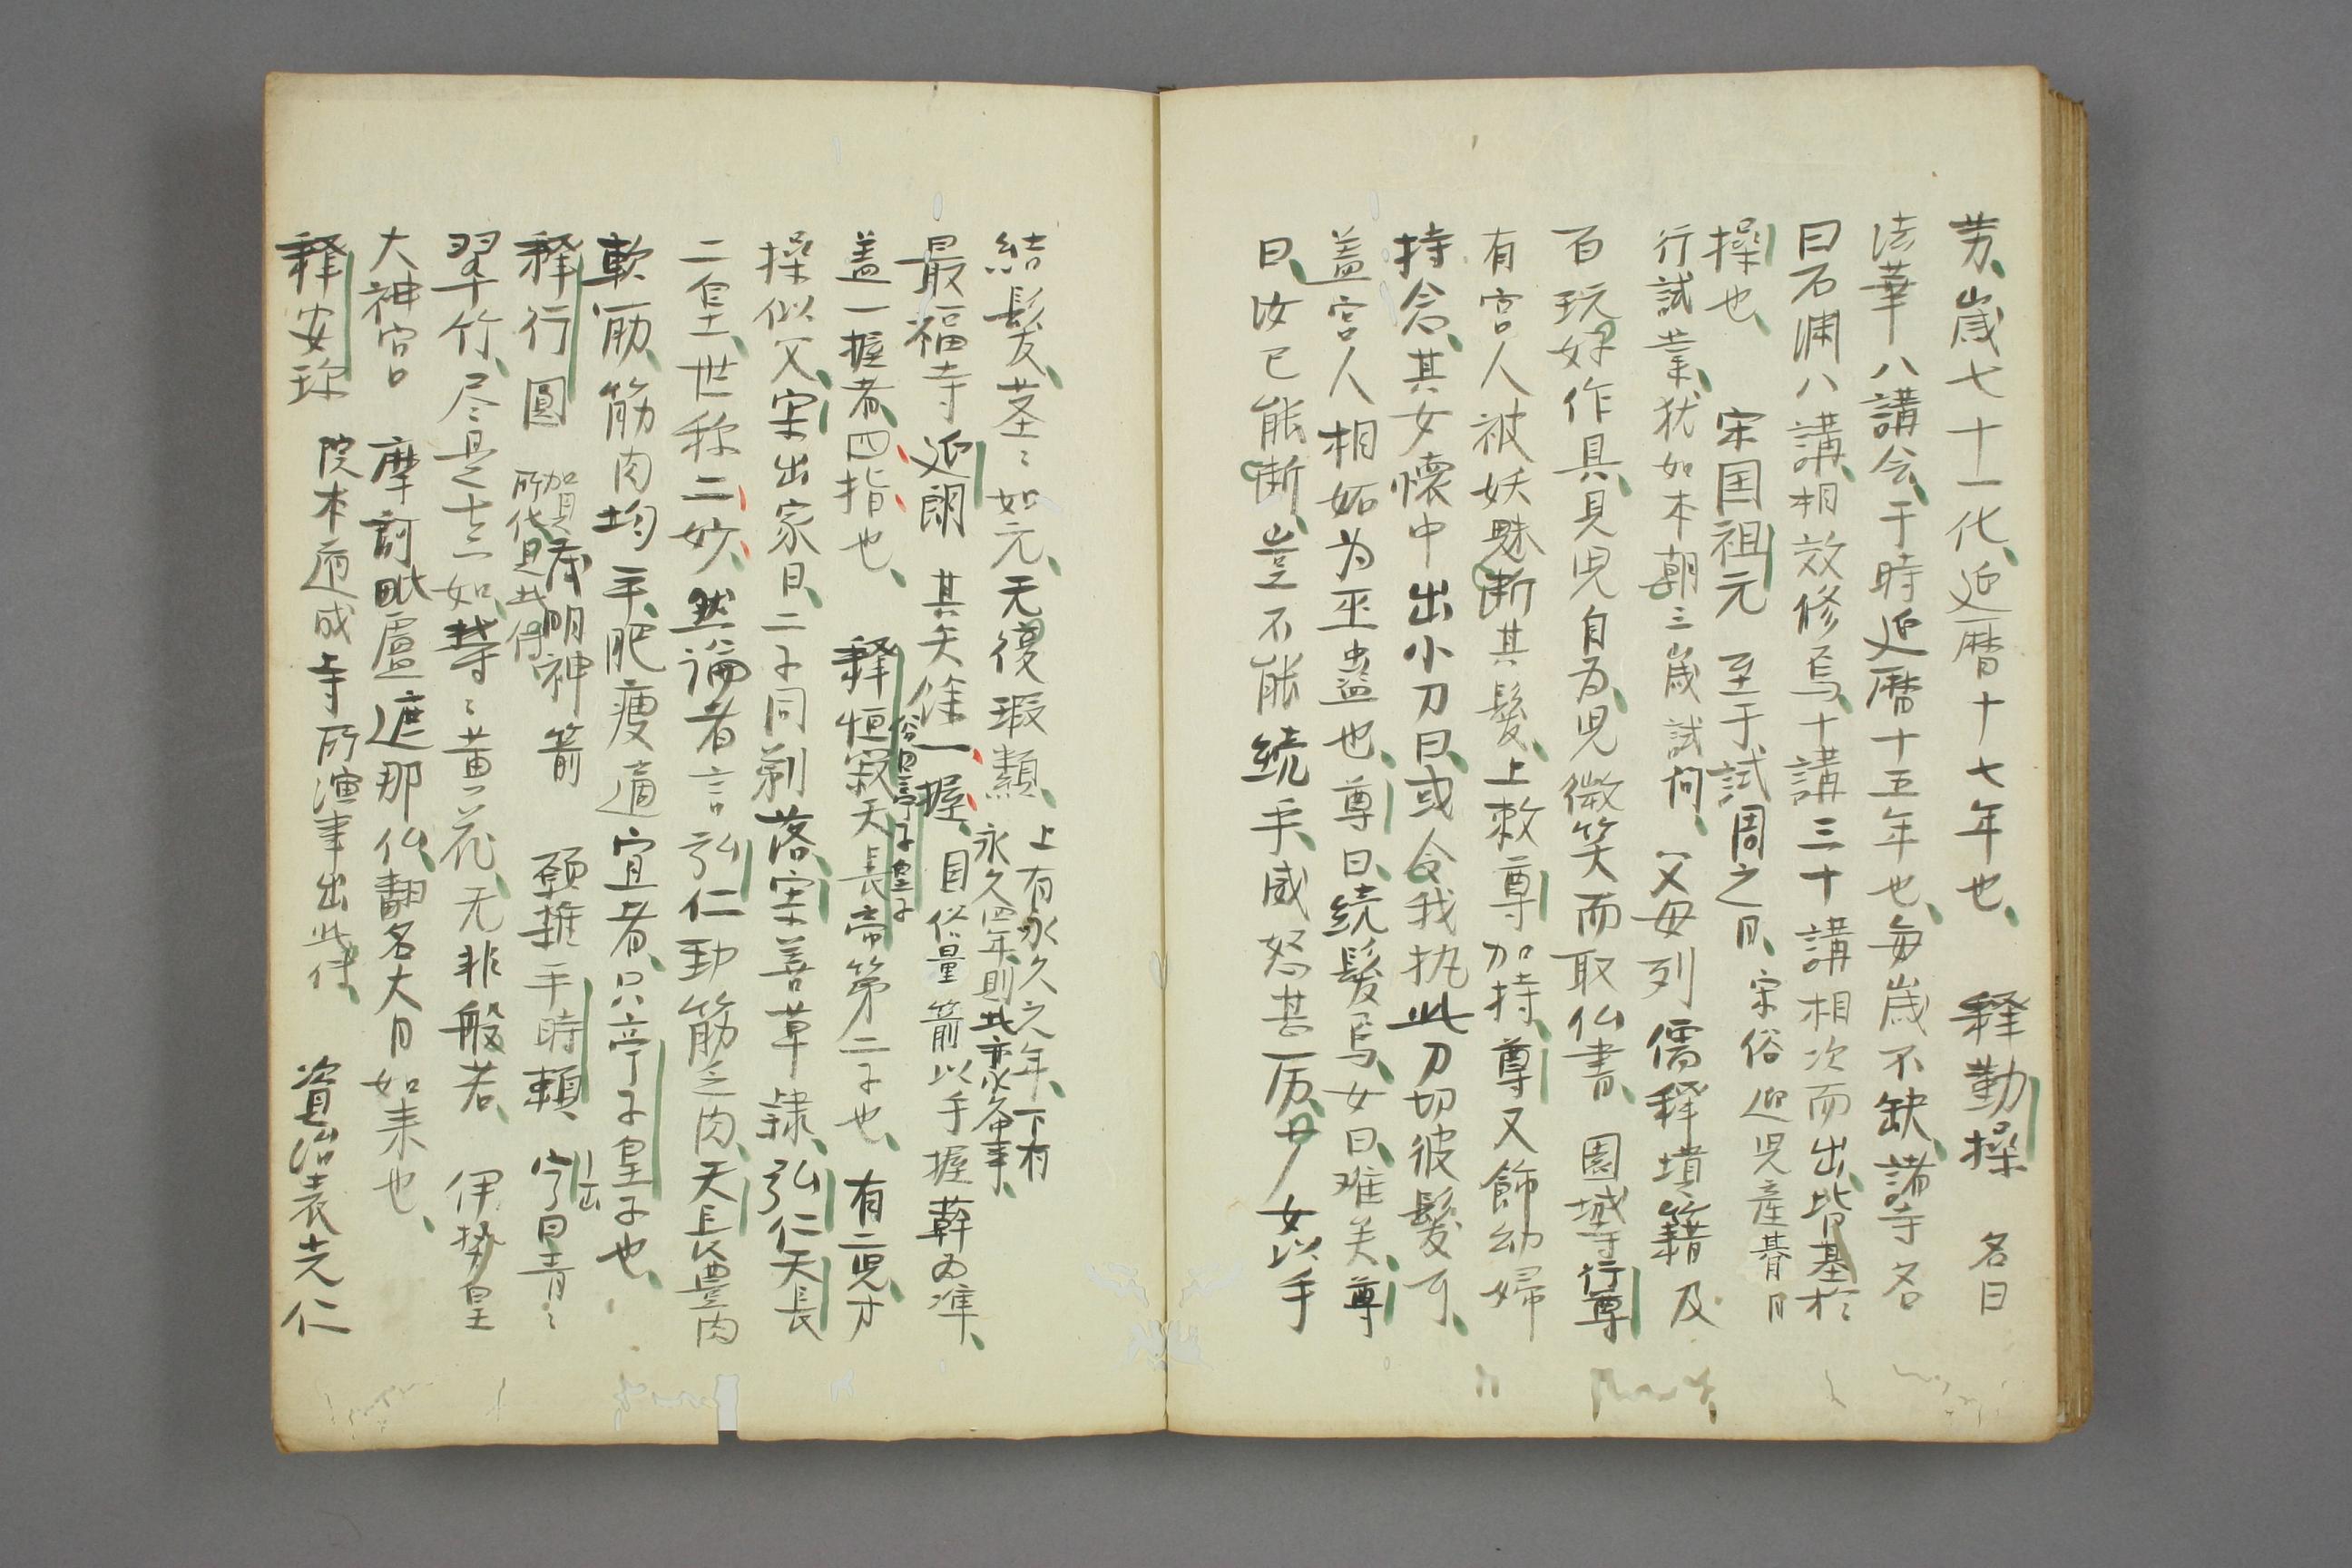 労、歳七十一化、延暦十七年也、　釈勤操　名曰
法華八講会、于時延暦十五年也、毎歳不缺、諸寺各
曰石淵八講、相效修焉、十講三十講相次而出、皆基於
操也、　宋国祖元　至于試周之日、宋俗迎児産朞日
行試業、犹如本朝三歳試問、父母列儒釈墳籍及
百玩好作具、見児自為、児微笑而取仏書、園城寺行尊
有宮人被妖魅断其髪、上敕尊加持、尊又飾幼婦
持念、其女懷中出小刀曰、或令我执此刀切彼髪可、
盖宮人相妬为巫蛊也、尊曰、続髪焉、女曰、难矣、尊
曰、汝已能断、豈不能続乎、威怒甚厉、少女以手
結髪、茎〻如元、无復瑕纇、上有永久之年、下有
永久四年、則此亦永久中事、
最福寺延朗　其矢條一握、目俗量箭以手握簳为準、
盖一握者、四指也、　釈恒寂天長帝第二子也、俗曰亭子皇子　有二児、才
操似父、宋出家日、二子同剃落、宋善草隷、弘仁天長
二皇、世称二妙、然論者言弘仁勁筋乏肉、天長豊肉
軟筋、筋肉均手、肥瘦適宜者、只亭子皇子也、
釈行圓　加賀所貸且此得　明神箭　頚推手時頼　字曰青〻
翠竹、尽是真如、欝〻黄花、无非般若、　伊勢皇
大神宮　摩訶毗盧遮那仏、翻名大日如来也、
釈安珎　院本道成寺所演事出此伝、　資治表光仁